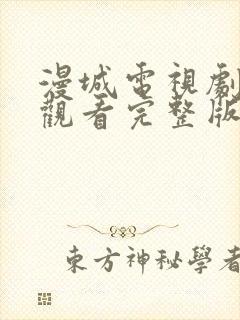 漫城電視劇
觀看完整版
東方神秘學者